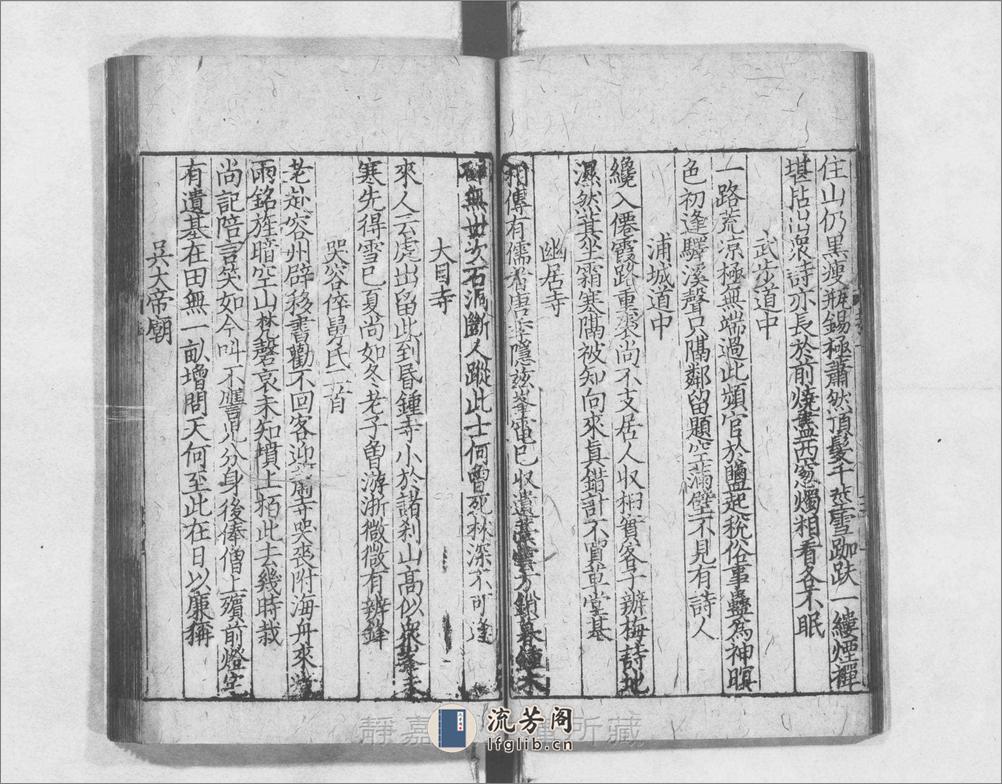 住山仍黑瘦瓶錫極蕭然頂髮千莖雪跏趺一縷煙禪
堪拈出眾詩亦長於前燒盡西窓燭相看各不眠
武步道中
一路荒凉極無端過此頻官於鹽起稅俗事蠱為神暝
色初逢驛溪聲只隔鄰留題空滿壁不見有詩人
浦城道中
纔入僊霞路重裘尚不支居人收桕實客子辦梅詩地
濕然萁坐霜寒隔被知向來真錯計不買草堂基
幽居寺
相傳有儒者唐季隱茲峯竈已收遺 雲方鎖暮鐘木
無 次石 斷人蹤此士何曾死林深不可逢
大目寺
來人云虎出留此到昏鍾寺小於諸刹山高似眾峯未
寒先得雪已夏尚如冬老子曽游浙微微有辨鋒
哭容倅舅氏二首
老赴容州辟移書勸不回客迎 寺哭喪附海舟來
雨銘旌暗空山梵磬哀未知墳上栢此去幾時栽
尚記陪言笑如今叫不譍兒分身後俸僧上殯前燈宅
有遺基在田無一畝增問天何至此在日以廉稱
吳大帝廟
靜嘉 所藏
流芳阁
lfglib.cn